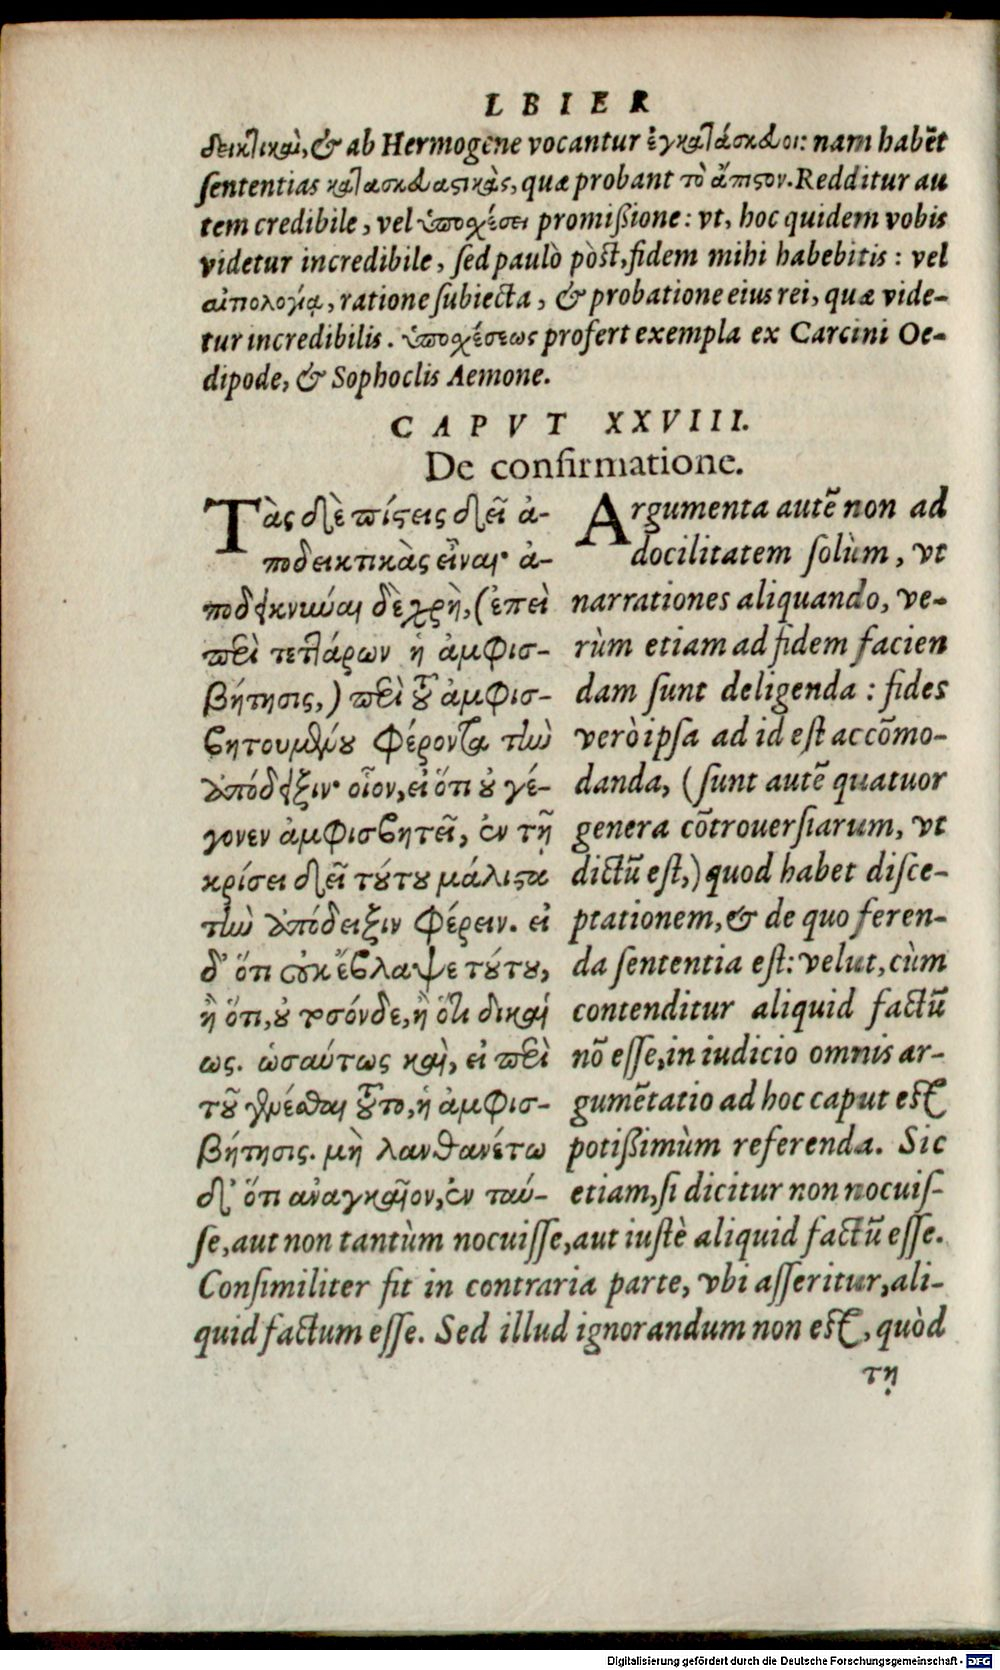 LBIER
δεικτικαὶ, & ab Hermogene vocantur ἐγκατάσκευοι: nam habēt
sententias κατασκευαστικὰς, quæ probant τὸ ἄπιστον. Redditur au
tem credibile, vel ὑποσχέσει promißione: vt, hoc quidem vobis
videtur incredibile, sed paulò pòst, fidem mihi habebitis: vel
αἰτιολογίᾳ, ratione subiecta, & probatione eius rei, quæ vide-
tur incredibilis. ὑποσχέσεως profert exempla ex Carcini Oe-
dipode, & Sophoclis Aemone.
CAPVT XXVIII.
De confirmatione.
Τὰς δὲ πίστεις δεῖ ἀ-
ποδεικτικὰς εἶναι· ἀ-
ποδεικνύναι δὲ χρὴ, (ἐπεὶ
περὶ τεττάρων ἡ ἀμφισ-
βήτησις,) περὶ τοῦ ἀμφισ-
βητουμένου φέροντα τὴν
ἀπόδειξιν· οἷον, εἰ ὅτι οὐ γέ-
γονεν ἀμφισβητεῖ, ἐν τῇ
κρίσει δεῖ τούτου μάλιστα
τὴν ἀπόδειξιν φέρειν. εἰ
δ' ὅτι οὐκ ἔβλαψε τούτου,
ἢ ὅτι, οὐ τοσόνδε, ἢ ὅτι δικαί
ως. ὡσαύτως καὶ, εἰ περὶ
τοῦ γενέσθαι τοῦτο, ἡ ἀμφισ-
βήτησις. μὴ λανθανέτω
δ' ὅτι ἀναγκαῖον, ἐν ταύ-
Argumenta autē non ad
docilitatem solùm, vt
narrationes aliquando, ve-
rùm etiam ad fidem facien
dam sunt deligenda: fides
verò ipsa ad id est accōmo-
danda, (sunt autē quatuor
genera cōtrouersiarum, vt
dictū est,) quod habet disce-
ptationem, & de quo feren-
da sententia est: velut, cùm
contenditur aliquid factū
nō esse, in iudicio omnis ar-
gumētatio ad hoc caput est
potißimùm referenda. Sic
etiam, si dicitur non nocuis-
se, aut non tantùm nocuisse, aut iustè aliquid factū esse.
Consimiliter fit in contraria parte, vbi asseritur, ali-
quid factum esse. Sed illud ignorandum non est, quòd
τῃ
Digitalisierung gefördert durch die Deutsche Forschungsgemeinschaft - DFG